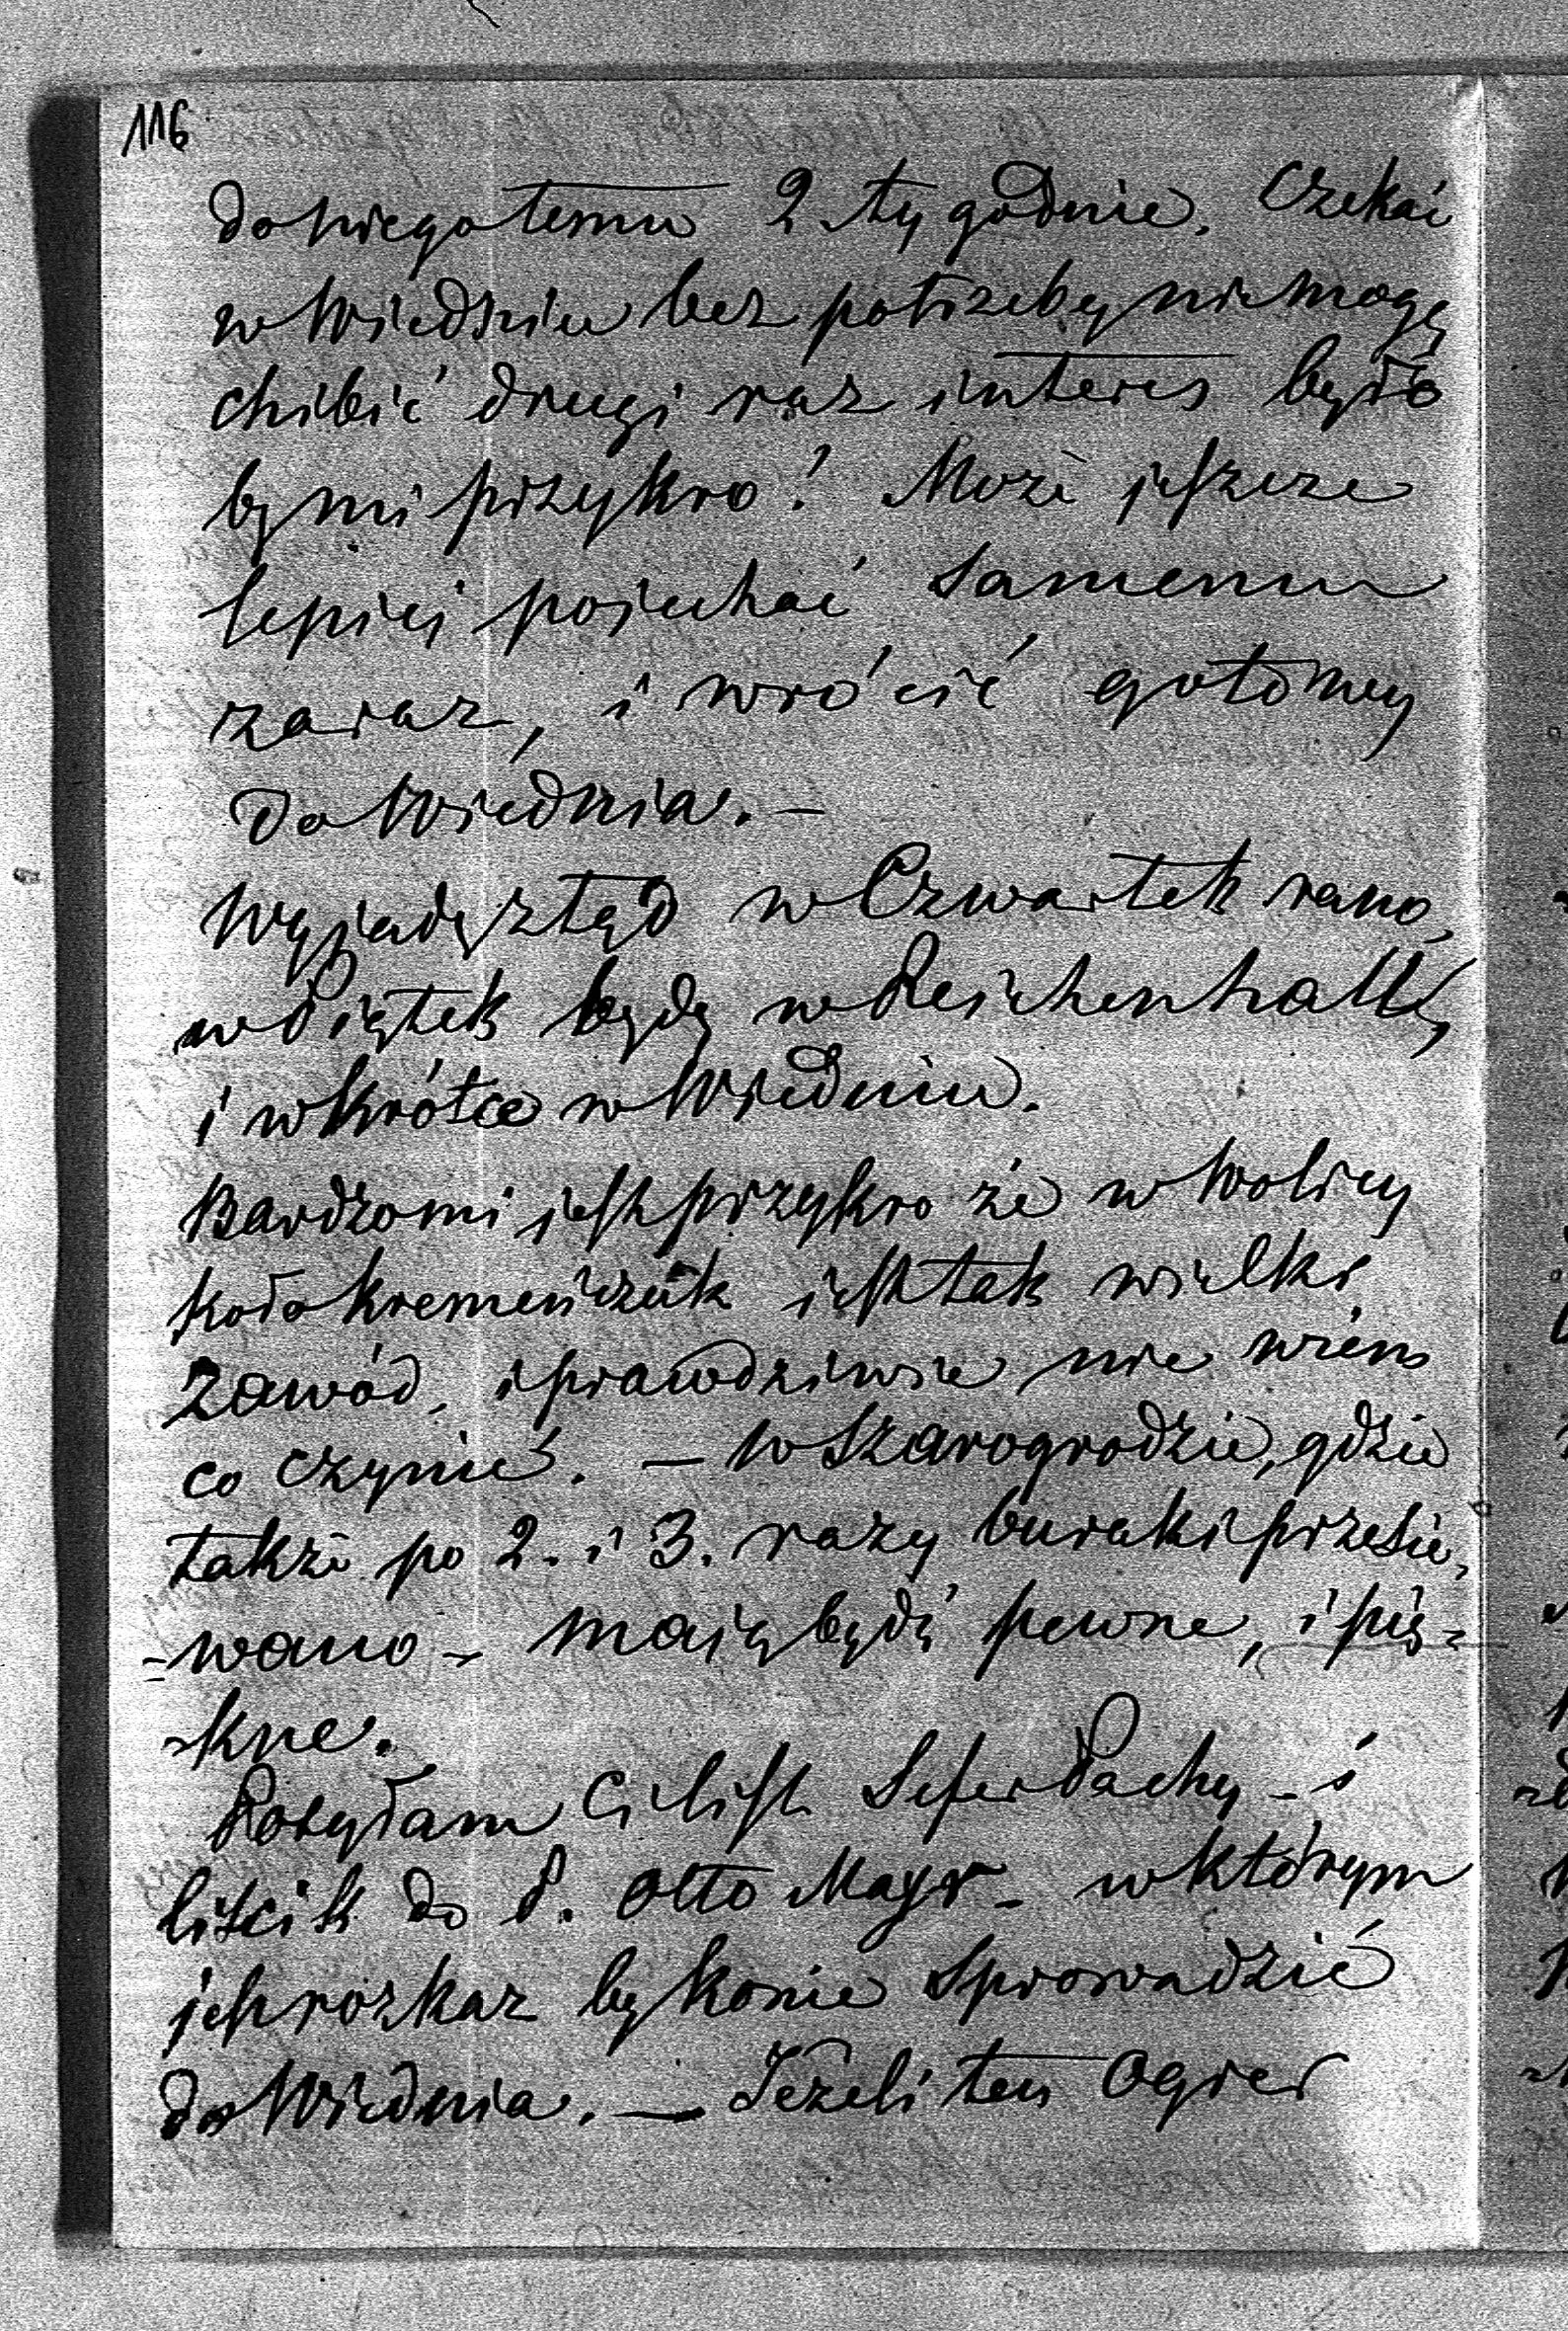 116
do niego temu 2 tygodnie. Czekać
w Wiedniu bez potrzeby nie mogę
chibić drugi raz interes było
by mi przykro! Może jeszcze
lepiej pojechać samemu
zaraz, i wrócić gotowy
do Wiednia. —
Wyjadę ztąd w Czwartek rano,
w Piątek będę w Reichenhall,
i wkrótce w Wiedniu.
Bardzo mi jest przykro że w Wolicy
koło Kremeńczuk jest tak wielki
zawód, i prawdziwie nie wiem
co czynić. — w Szarogrodzie, gdzie
także po 2. i 3. razy buraki przesie,
=wano - mają będź pewne, i pię=
=kne.
Posyłam Ci list Sefer Paszy - i
liścik do P. Otto Mayr - w którym
jest rozkaz by konie sprowadzić
do Wiednia. — Jeżeli ten Ogier